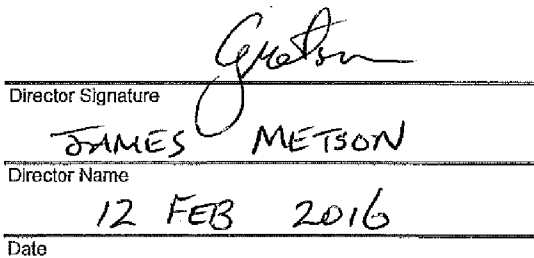 Director Signature
JAMES METSON
Director Name
12 FEB 2016
Date